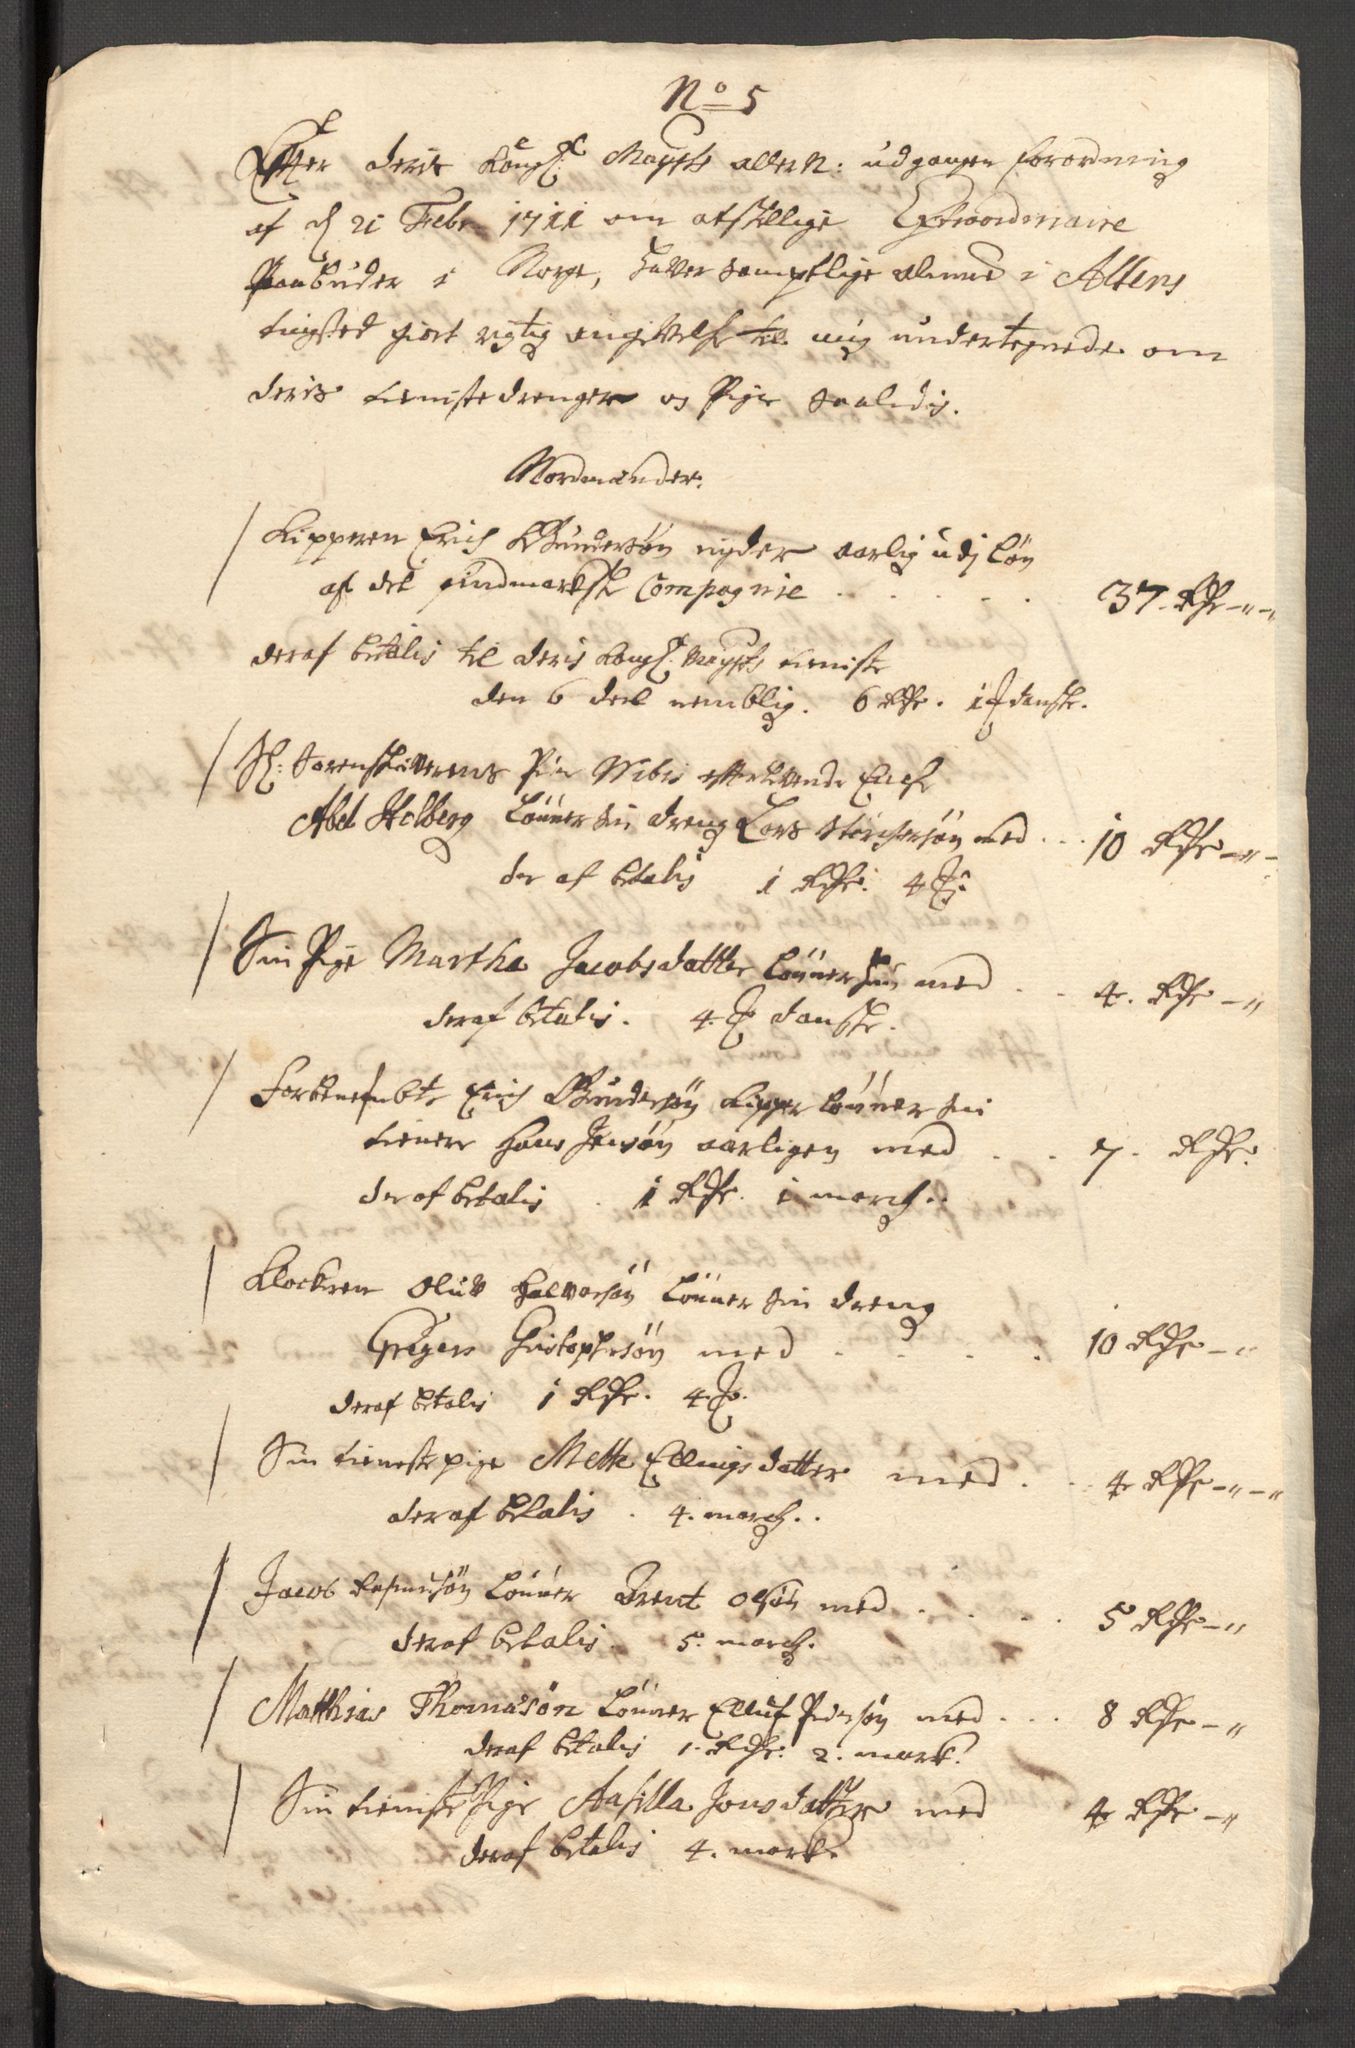 No 5
Efter deris Kongl: Maÿstz allern: udgangen forordning
af d 21 Febr 1711 om atskellige Extraordinaire
Paabuder i Norge, hafver samptlige almue i Altens
tingsted giort rigtig angifvelse til mig undertegnede om
deris tieniste drenger og Piger saaledis.
Nordmænder.
Kipperen Erich Gundersøn nyder aarlig udj Løn
af det findmarkske Compagnie . . . . . 37. Rdr - " - "
deraf betalis til deris Kongl: Maÿstz tieniste
den 6 deel nemblig. 6 Rdr. 1 ß danske.
Sl: Sorenskrifverens Peder Wibes efterlevende Encke
Abel Holberg Lønner sin dreng Lars med . . . 10 Rdr - " -
der af betalis 1 Rdr: 4 ß:
Sin Pige Martha Jacobsdatter Lønner hun med . . 4. Rdr - "
deraf betalis. 4. ß danske.
Forbenefnte Erich Gundersøn Kipper Lønner sin
tienere Hans Jensøn aarligen med . . 7. Rdr.
der af betalis . 1 Rdr. 1 march..
Klockeren Oluf Halvorsøn Lønner sin dreng
Gregers Christophersøn med . . . . 10 Rdr - "
deraf betalis 1 Rdr. 4 ß.
Sin tieneste pige Mette Ellingsdatter med . . 4 Rdr - " - "
deraf betalis . 4. march..
Jacob Rasmusøn Lønner Brent Olsøn med . . . . 5 Rdr - "
deraf betalis. 5. march.
Matthias Thomasøn Lønner Elluf Pedersøn med . . . 8 Rdr - "
deraf betalis 1. Rdr: 2. mark.
Sin tieniste Pige Aasilla Jonsdatter med 4 Rdr - "
deraf betalis 4. mark.